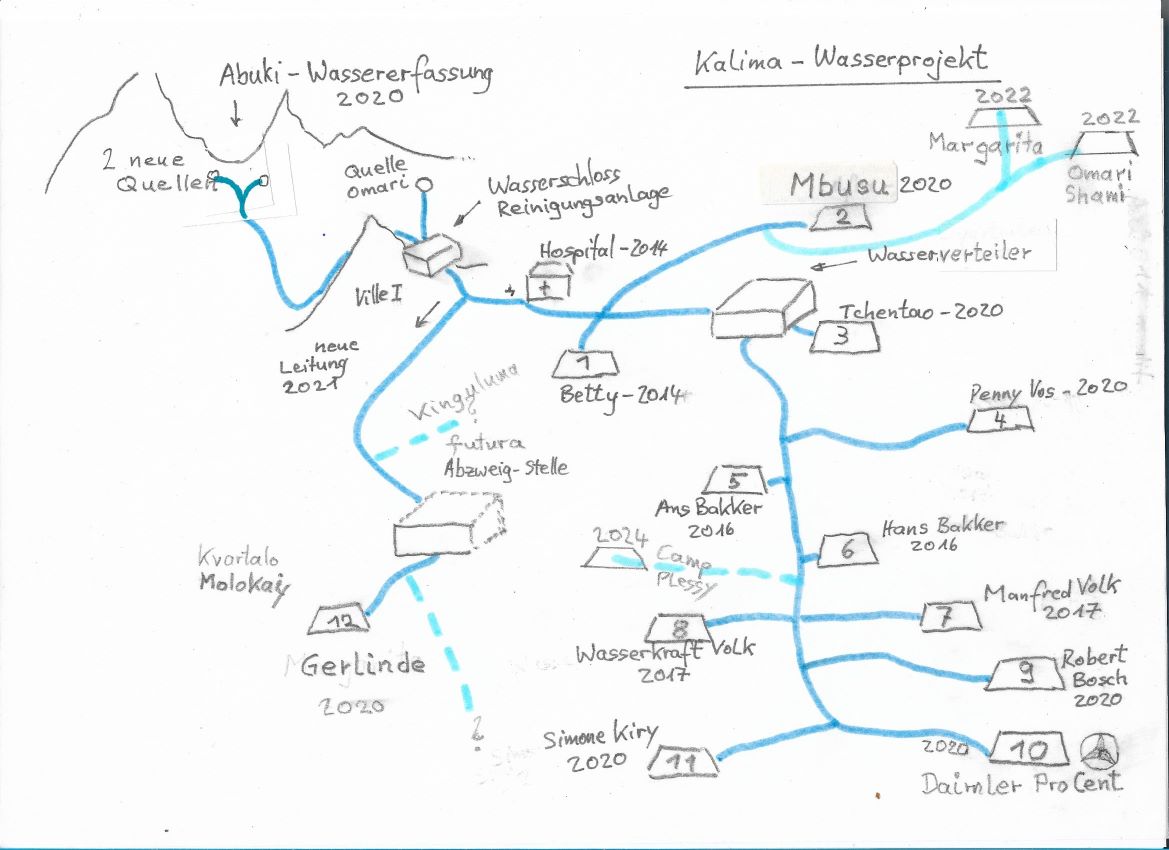 Kalima - Wasserprojekt
Abuki - Wassererfassung
2020
2 neue
Quellen
Quelle
Omari
Wasserschloss
Reinigungsanlage
2022
Margarita
2022
Omari
Shami
Mbusu 2020
2
Hospital - 2014
Wasserverteiler
Ville I
neue
Leitung
2021
1
Betty - 2014
Tchentao - 2020
3
Kinguluma
?
futura
Abzweig-Stelle
Penny Vos - 2020
4
5
Ans Bakker
2016
Hans Bakker
2016
6
2024
Camp
Plessy
Kvartalo
Molokaiy
12
Gerlinde
2020
?
8
Wasserkraft Volk
2017
Manfred Volk
2017
7
Robert
Bosch
2020
9
Simone Kiry
2020
11
2020
10
Daimler ProCent